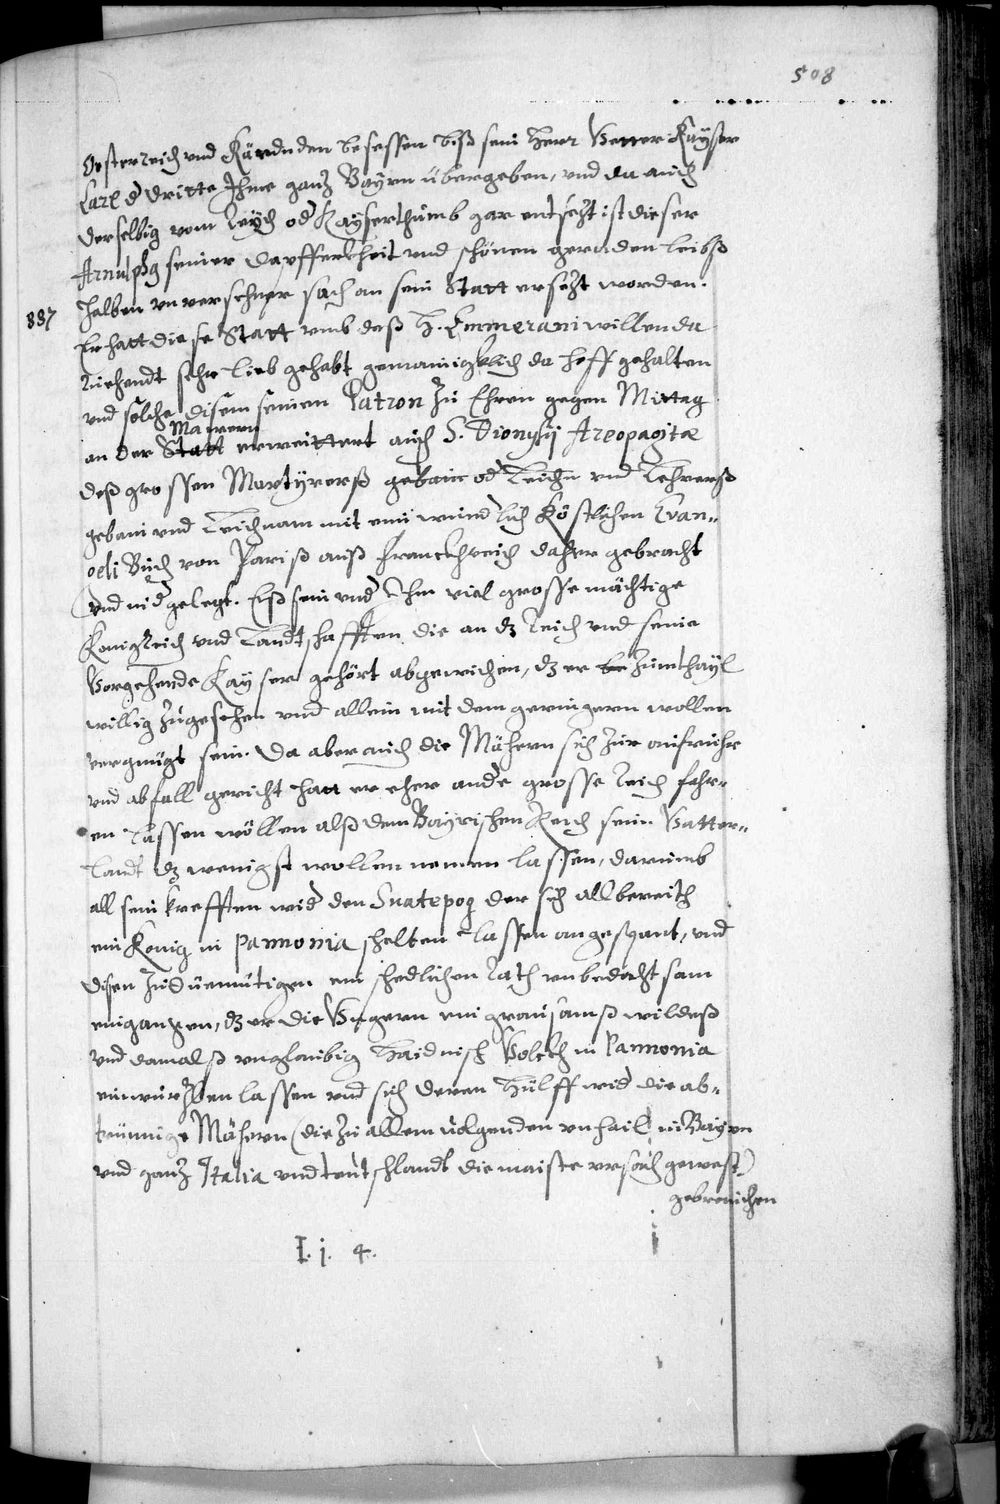 508
Österreich vnd Kärndnden besessen biß sein Herr Vetter Kayser
Carl d dritte Ihme ganz Bayrn übergeben, vnd da auch
derselbig vom Reych od Kayserthumb gar entsezt ist dieser
Arnulphg seiner dapfferkheit vnd schönen geraden leibß
halben vnversehner sach an sein Statt ersezt worden.
887
Er hatt diese Statt vmb deß H. Emmerani willen da
ruehendt sehr lieb gehabt gemainigklich da hoff gehalten
vnd solche disem seinem Patron zu Ehren gegen Mittag
Mawern
an der Statt erweittert auch S. Dionysij Areopagitæ
deß grossen Martyrerß gebain od Leichn vnd Lehrerß
gebain vnd Leichnam mit eim wund lich Köstlichen Evan-
geli Buch von Pariß auß Franckhreich daher gebracht
vnd nid gelegt. Eß sein vnd Ihm viel grosse mächtige
Konigreich vnd Landtschafften die an dz Reich vnd seine
Vorgehende Kayser gehört abgewichen, dz er zumthayl
willig zugesehen vnd allein mit dem geringern wollen
vergnügt sein. Da aber auch die Mähern sich zur aufruhr
vnd abfall gericht hatt er eher ande grosse Reich fahr-
en lassen wöllen alß dem Bayrischen Reich sein Vatter-
landt dz wenigst wollen nemen lassen, darumb
all sein krefften wid den Suatepog der sich allbereith
ein Konig in Pannonia schelten lassen angespant, vnd
disen zuduemütigen ein schedlichen Rath vnbedachtsam
eingangen, dz er die Vngern ein grausamß wildeß
vnd damalß vnglaubig Haidnisch Volckh in Pannonia
einwurzlen lassen vnd sich deren Hülff wid die ab-
trünnige Mähern (die zu allem volgenden vnhail in Bayrn
vnd ganz Italia vnd teutschlandt die maiste vrsach gewest)
gebrauchen
I. j. 4.